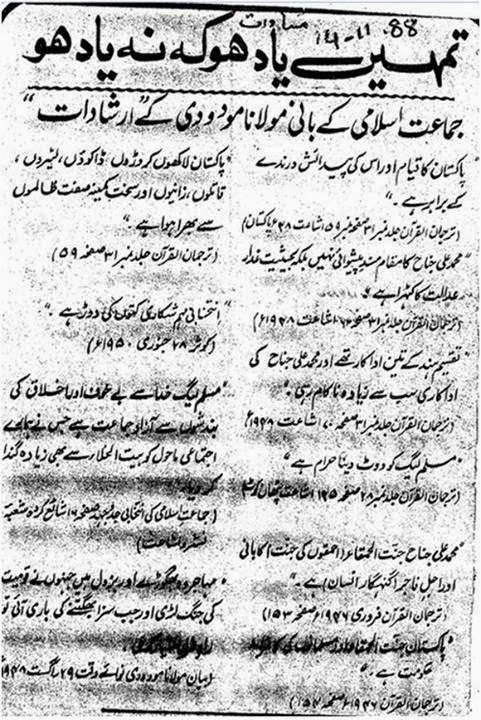 مساوات 14-11.88
تمہیں یاد ہو کہ نہ یاد ہو
جماعت اسلامی کے بانی مولانا مودودی کے "ارشادات"
پاکستان کا قیام اور اس کی پیدائش درندے
کے برابر ہے۔"
(ترجمان القرآن جلد نمبر ۳۱ صفحہ نمبر ۵۹ اشاعت ۴۸ء پاکستان)
محمد علی جناح کا مقام مسند پیشوائی نہیں بلکہ بحیثیت غدار
عدالت کا کٹہرا ہے۔
(ترجمان القرآن جلد نمبر ۳۱ صفحہ اشاعت ۱۹۴۸ء)
تقسیم ہند کے تین اداکار تھے اور محمد علی جناح کی
اداکاری سب سے زیادہ ناکام رہی۔
ترجمان القرآن جلد نمبر ۳۱ صفحہ ۷۰ اشاعت ۱۹۴۸ء)
"مسلم لیگ کو ووٹ دینا حرام ہے"
(ترجمان القرآن جلد نمبر ۲۸ صفحہ ۱۴۵ اشاعت
"محمد علی جناح جنّت الحمقاء (احمقوں کی جنّت) کا بانی
اور اجل فاجر (گنہگار انسان) ہے۔"
(ترجمان القرآن فروری ۱۹۴۶ء صفحہ ۱۵۳)
پاکستان جنّت الحمقاء اور مسلمانوں کی
حکومت ہے۔"
(ترجمان القرآن ۱۹۴۶ء صفحہ ۱۵۴)
"پاکستان لاکھوں کروڑوں، ڈاکوؤں، لٹیروں،
قاتلوں، زانیوں اور سخت کمینہ صفت ظالموں
سے بھرا ہوا ہے۔"
(ترجمان القرآن جلد نمبر ۳۱ صفحہ ۵۹)
"انتخابی مہم شکاری کتوں کی دوڑ ہے۔"
(کوثر ۲۸ جنوری ۱۹۵۰ء)
"مسلم لیگ خدا سے بے خوف اور اخلاق کی
بندشوں سے آزاد جماعت ہے جس نے ہمارے
اجتماعی ماحول کو بیت الخلاء سے بھی زیادہ گندا
کر دیا۔
(جماعت اسلامی کی انتخابی جدوجہد صفحہ ۱۶ شائع کردہ شعبہ
نشر و اشاعت)
"مہاجر وہ بھگوڑے اور بزدل ہیں جنہوں نے قومیت
کی جنگ لڑی اور جب سزا بھگتنے کی باری آئی تو
(بیان مولانا مودودی نوائے وقت ۲۹ اگست ۱۹۴۸ء